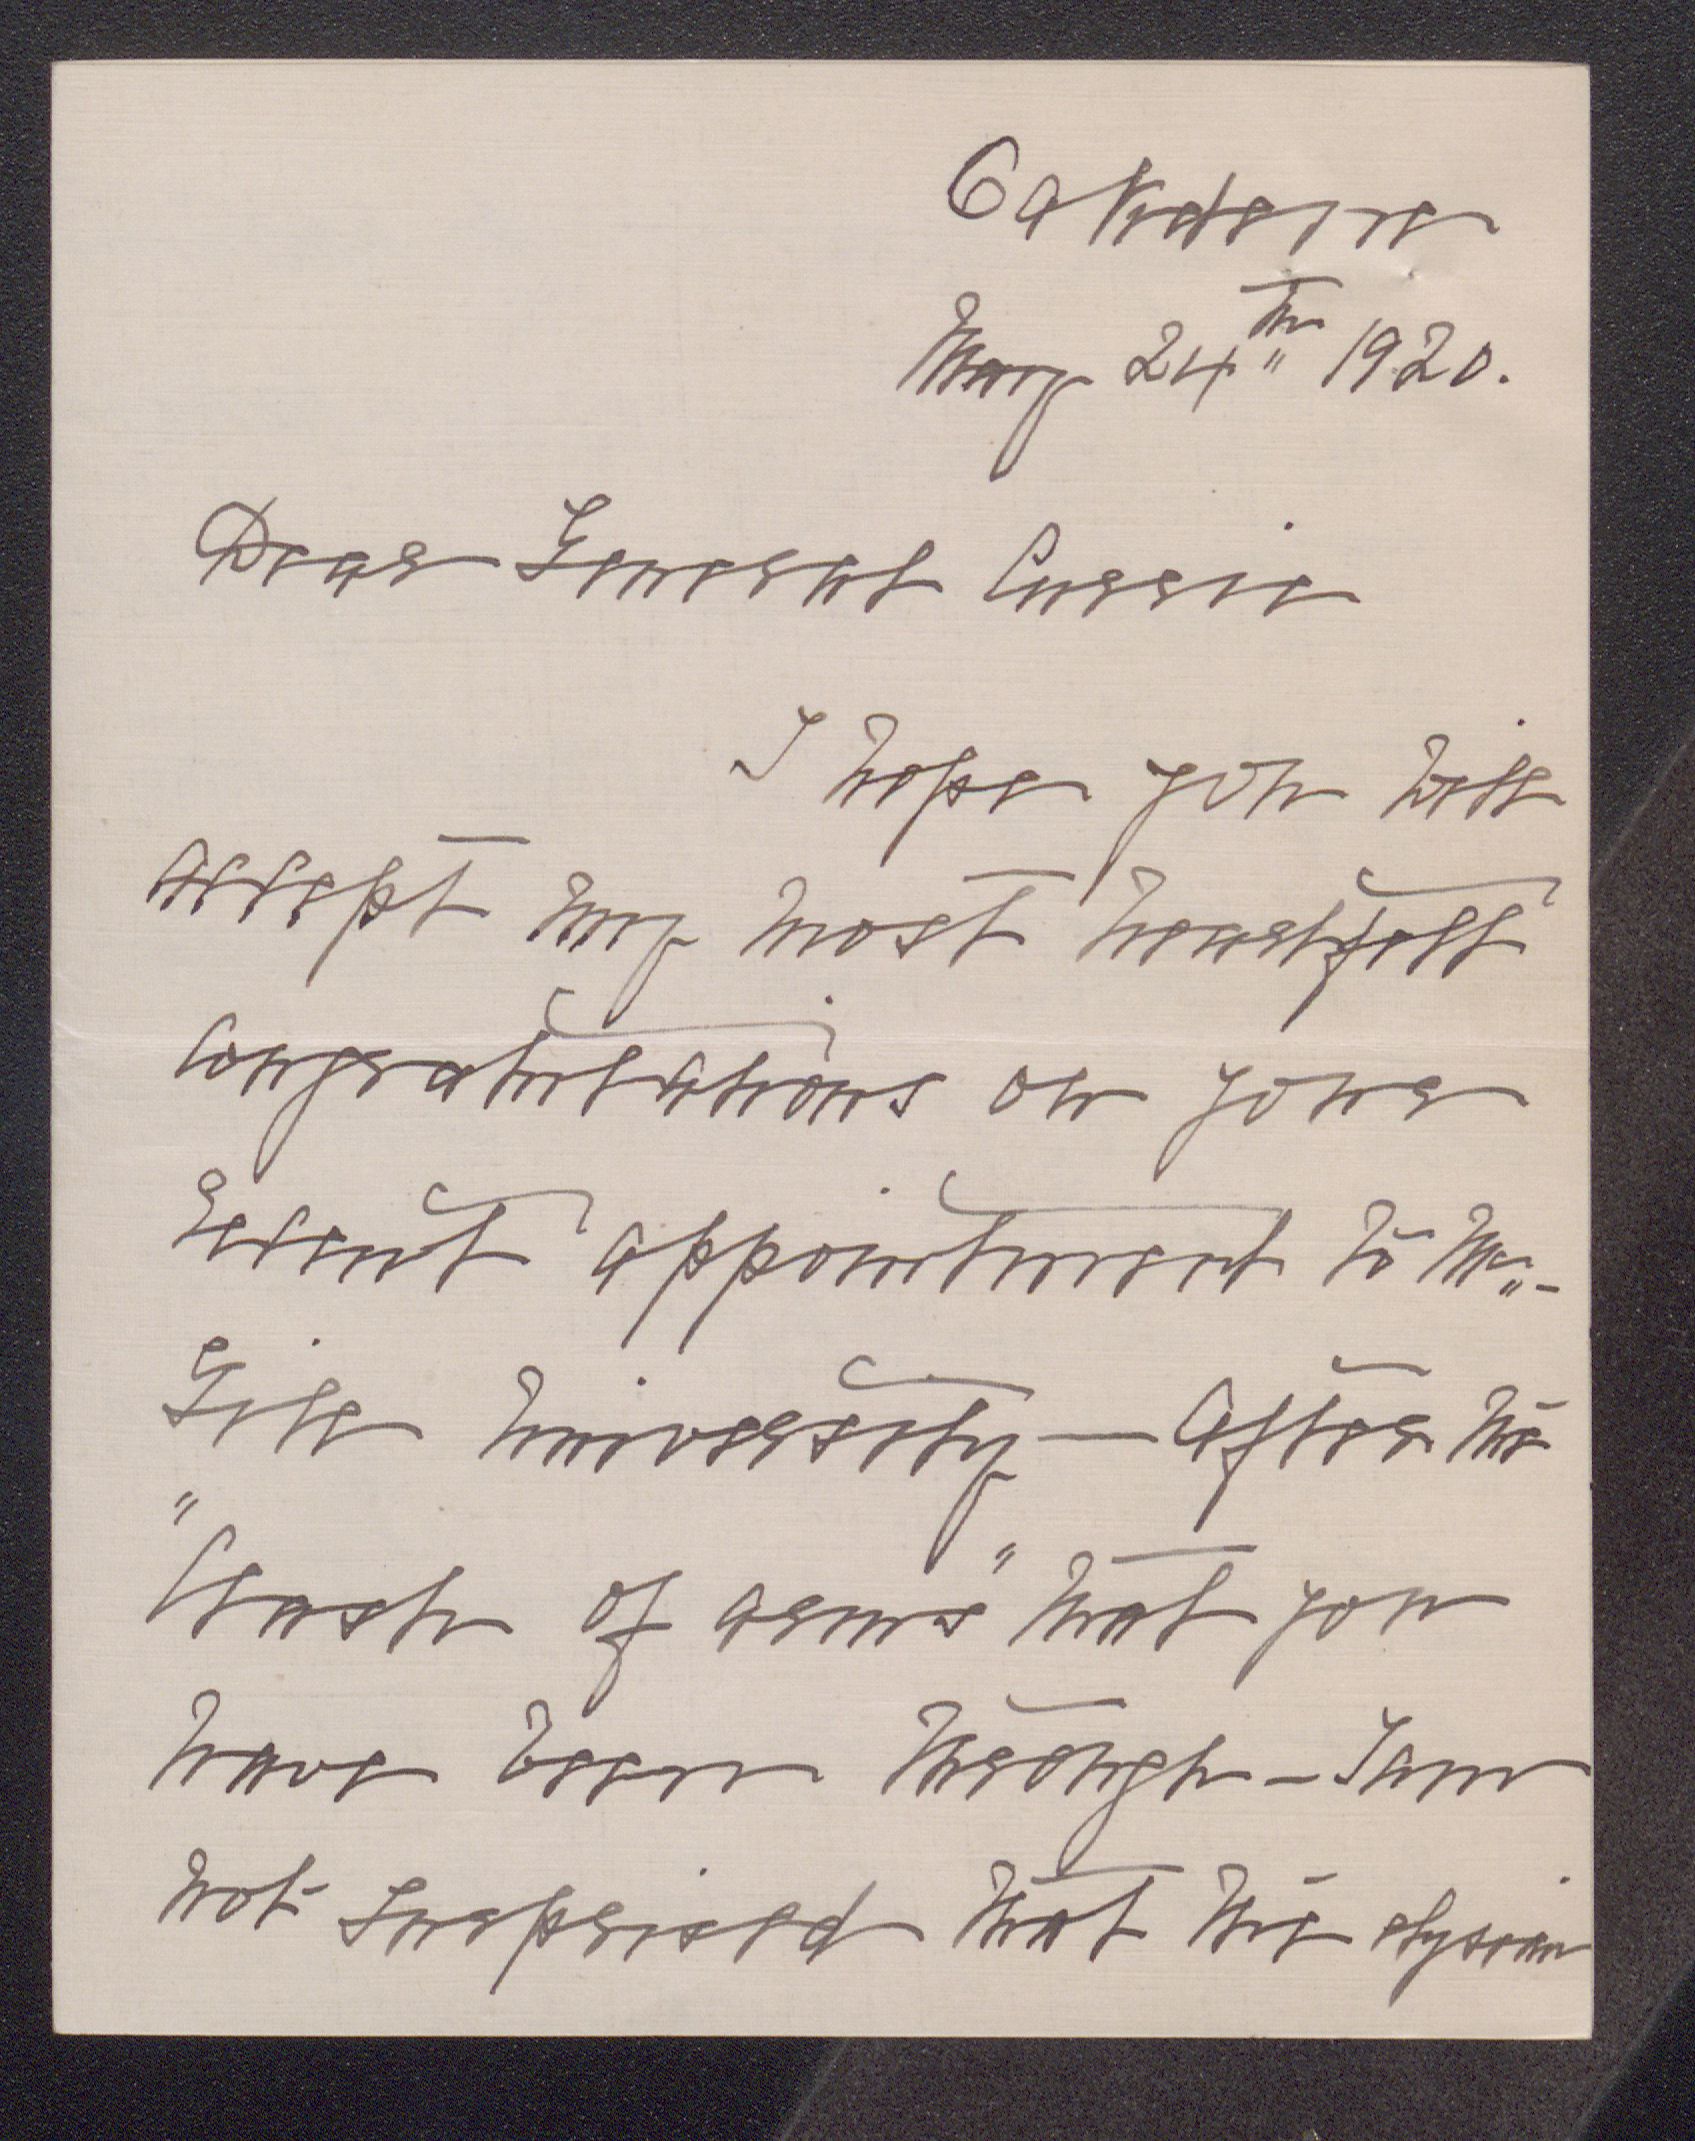 Oakdene
May 24th 1920.
Dear General Currie
I hope you will
accept my most heartfelt
congratulations on your
recent appointment to Mc-
Gill University — After the
"Clash of arms" that you
have been through – I am
not surprised that the elysian